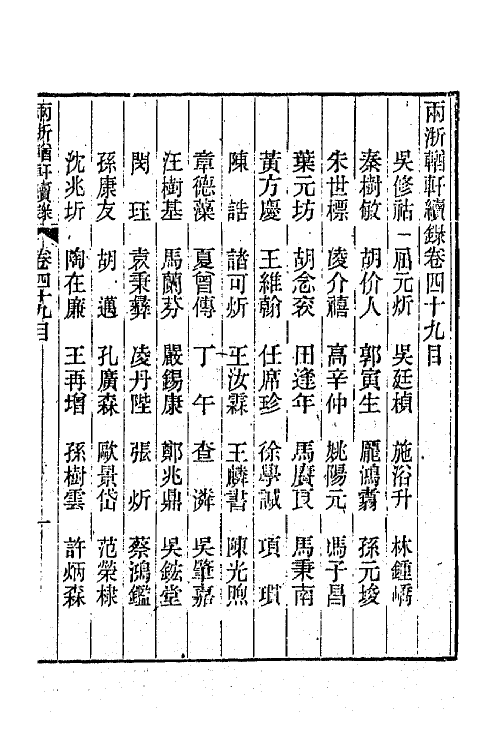 兩浙輶軒續錄卷四十九目
吳修祜 屈元炘 吳廷楨 施浴升 林鍾嶠
秦樹敏 胡价人 郭寅生 龎鴻翥 孫元埈
朱世標 凌介禧 高辛仲 姚陽元 馮子昌
葉元坊 胡念袞 田逢年 馬賡良 馬秉南
黃方慶 王維翰 任席珍 徐學誠 項瓆
陳誥 諸可炘 王汝霖 王麟書 陳光煦
章德藻 夏曾傳 丁午 查濟 吳肇嘉
汪樹基 馬蘭芬 嚴錫康 鄭兆鼎 吳鋐堂
閔珏 袁秉彝 凌丹陛 張炘 蔡鴻鑑
孫康友 胡邁 孔廣森 歐景岱 范榮棣
沈兆圻 陶在廉 王再增 孫樹雲 許炳森
兩浙輶軒續錄 卷四十九目 一